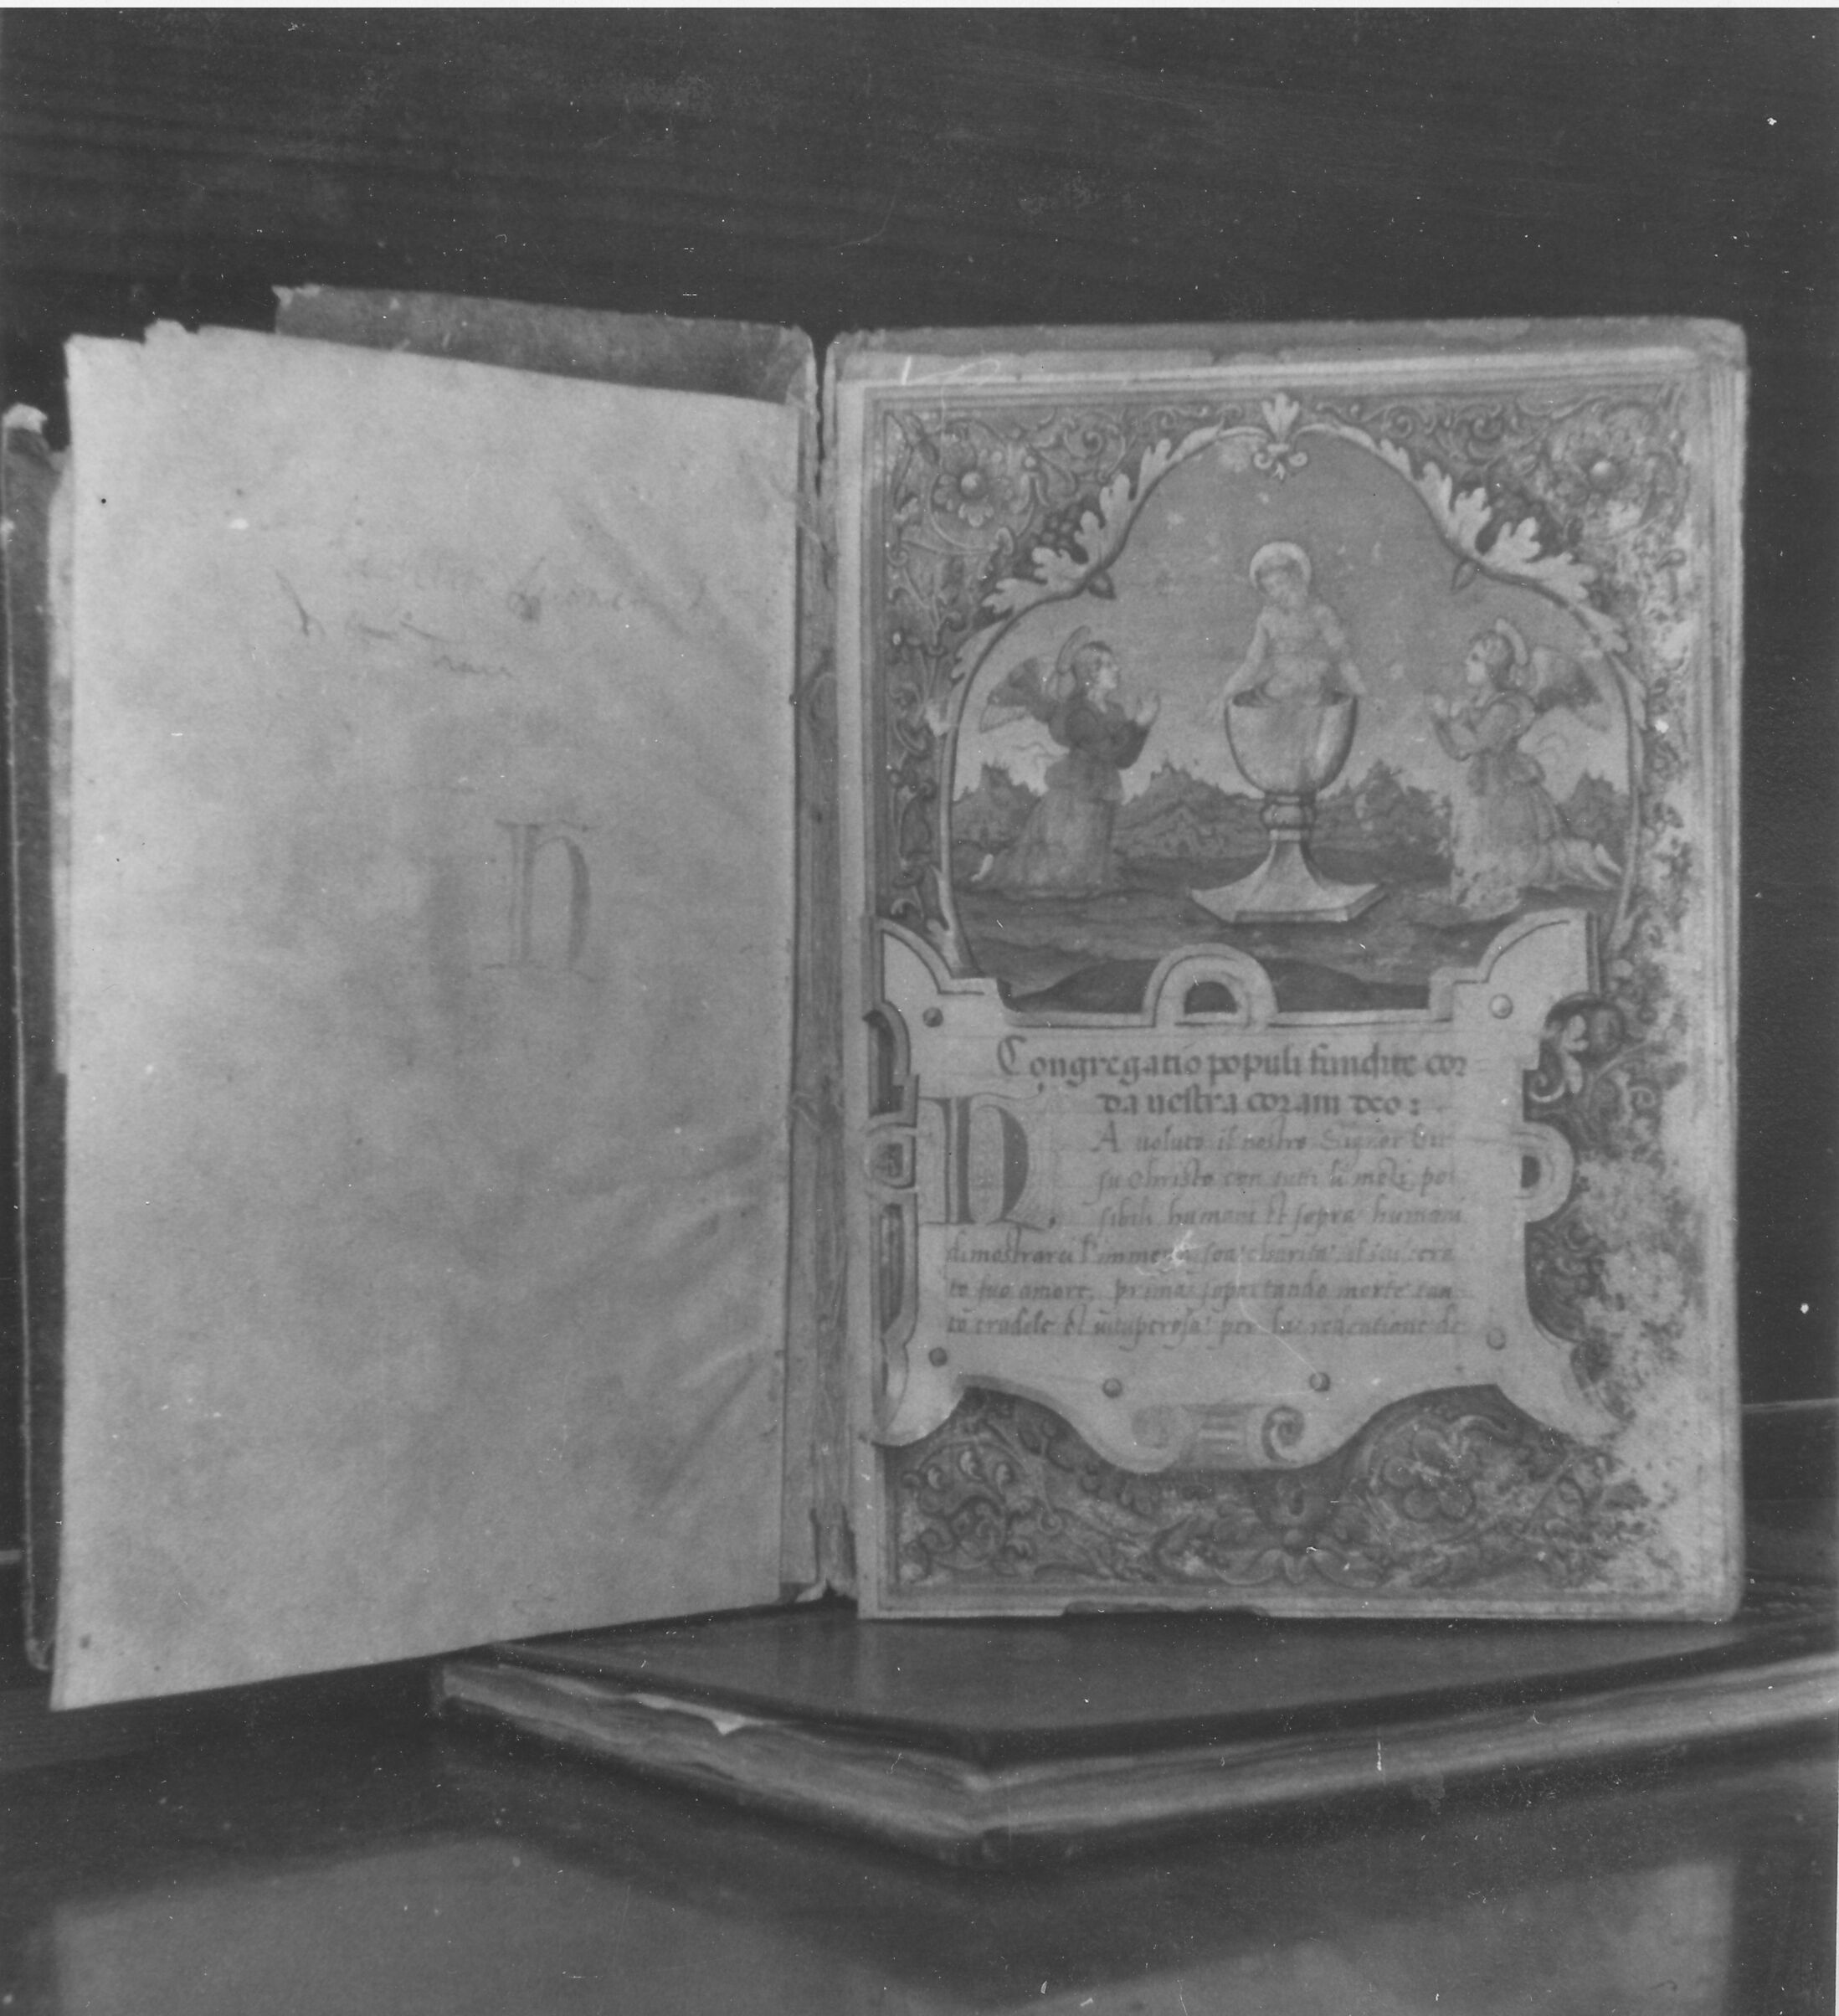 h
Congregatio populi fundite cor
da uestra coram deo:
HA uoluto il nostro Signor Gie
su Christo con tutti li modi pos
sibili humani et sopra humani
dimostrarci l'immensa sua charita' et
to suo amore, prima sopportando morte tan
to crudele et uituperosa' per la redentione de